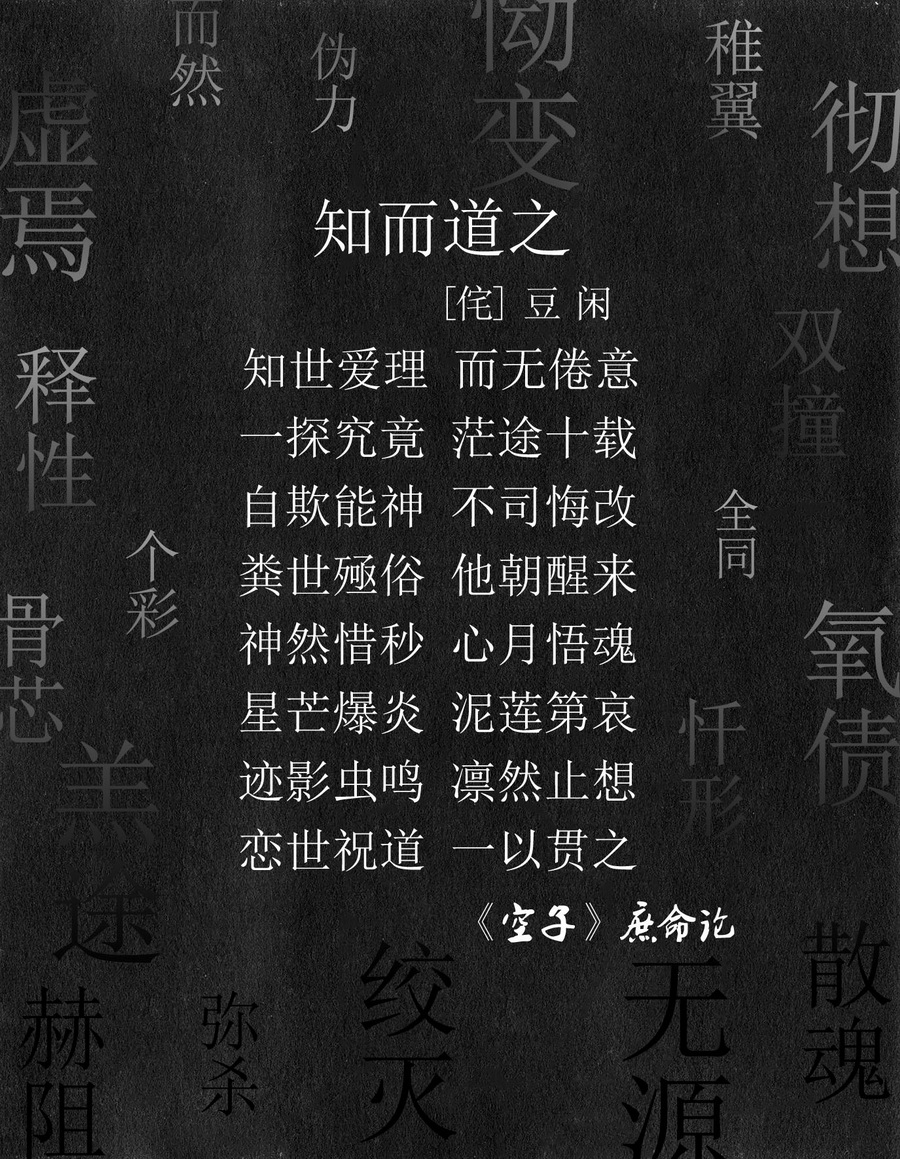 而然
伪力
恸变
稚翼
彻想
虚焉
知而道之
[侘] 豆 闲
知世爱理 而无倦意
一探究竟 茫途十载
自欺能神 不司悔改
粪世殛俗 他朝醒来
神然惜秒 心月悟魂
星芒爆炎 泥莲第哀
迹影虫鸣 凛然止想
恋世祝道 一以贯之
《空子》庶命论
双撞
释性
全同
个彩
骨芯
氧债
忏形
羔途
散魂
绞灭
无源
赫阻
弥杀